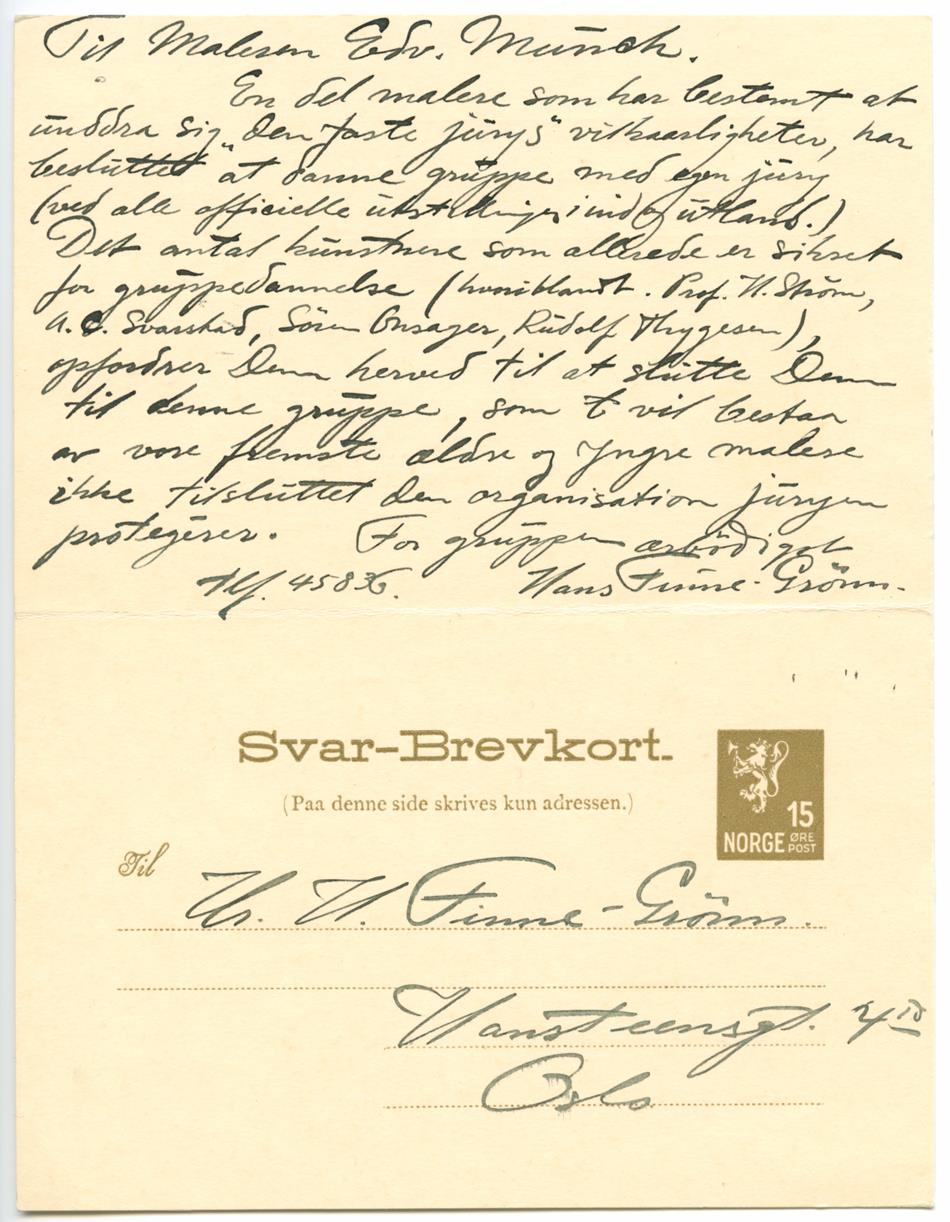 Til Maleren Edv. Munch.
En del malere som har bestemt at
unddra sig „den faste jurys“ vilkaarligheter, har
besluttet at danne gruppe med egen jury
(ved alle officielle utstillinger i ind og utland.)
Det antal kunstnere som allerede er sikret
for gruppedannelse (hvoriblandt. Prof. H. Strøm,
A. C. Svarstad, Sören Onsager, Rudolf Thygesen),
opfordrer Dem herved til at slutte Dem
til denne gruppe, som vil bestaa
av vore fremste ældre og yngre malere
ikke tilsluttet den organisation juryen
protegérer. For gruppen ærbödigst
Tlf. 45836. Hans Finne-Grönn.
Svar-Brevkort.
(Paa denne side skrives kun adressen.)
15
NORGE ØRE POST
Til
Hr. H. Finne-Grönn.
Hansteensgt.
Oslo